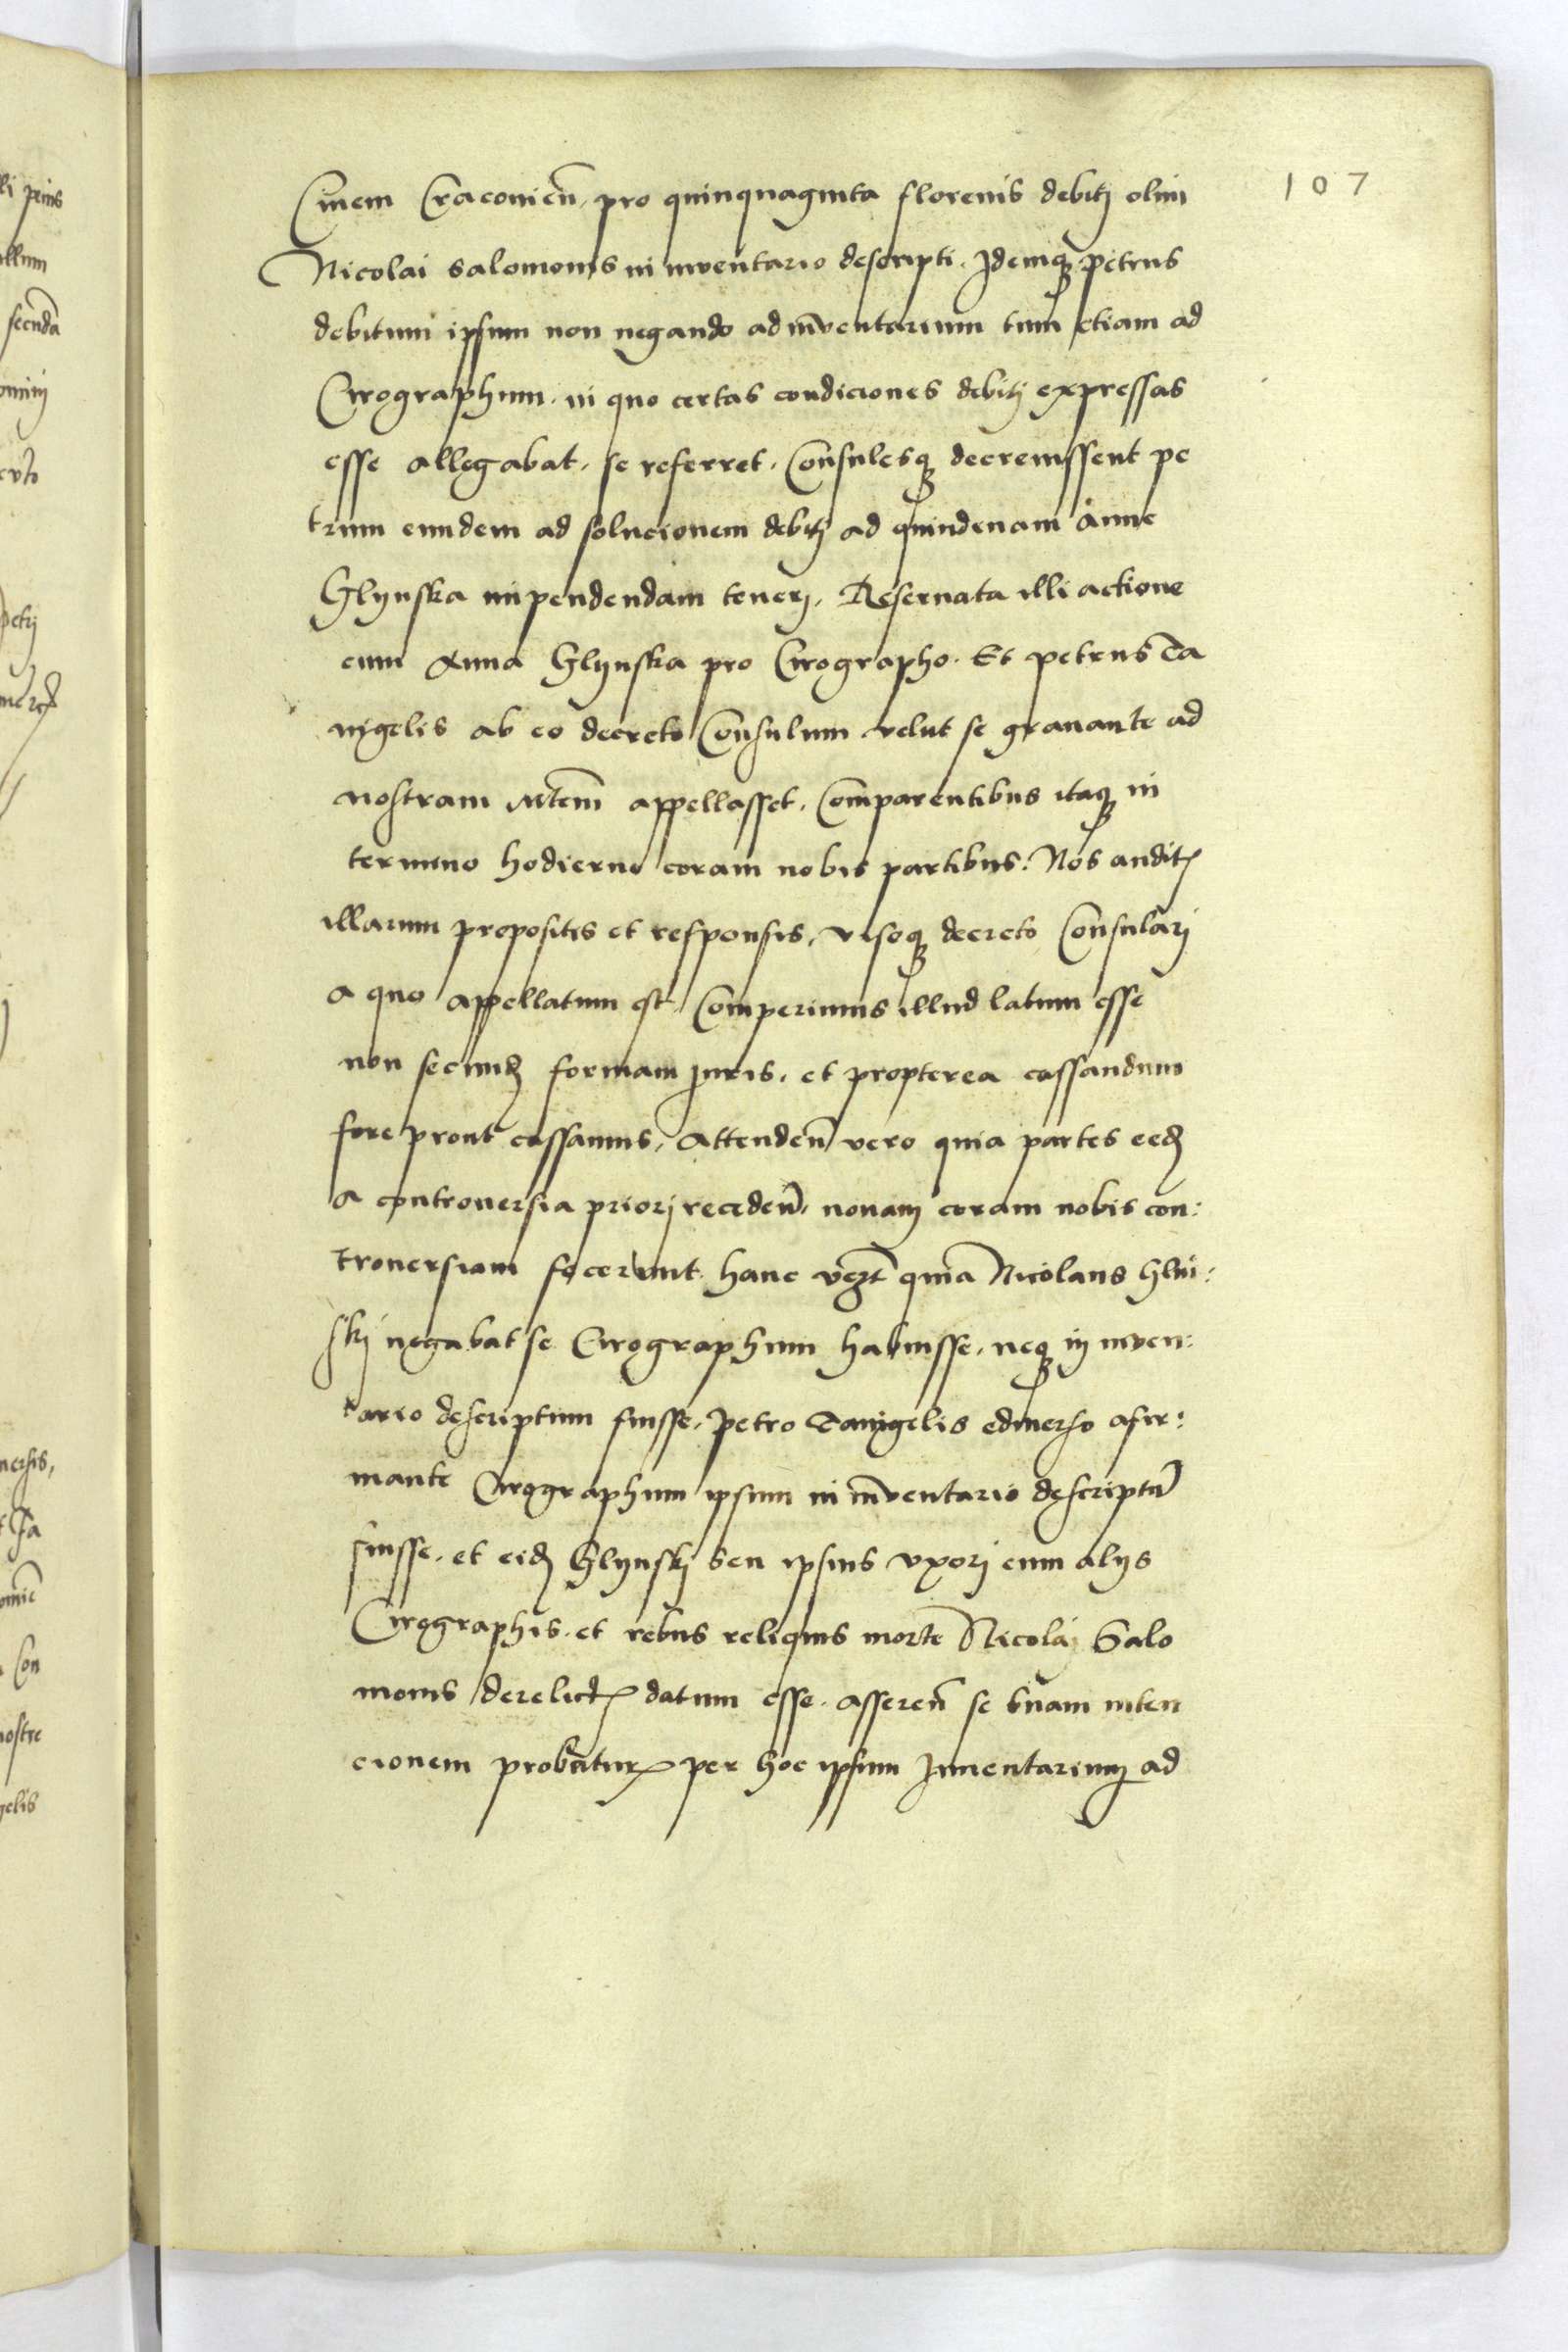 107
Civem Cracovień, pro quinquaginta florenis debitj olim
Nicolai Salomonis in inventario descripti. Idemq̧ Petrus
debitum ipsum non negando ad inventarium tum etiam ad
Cirographum, in quo certas condiciones debitj expressas
esse allegabat, se referret. Consulesq̧ decrevissent Pe
trum eundem ad solucionem debitj ad quindenam Anne
Glynska impendendam tenerj, Reservata illi actione
cum Anna Glynska pro Cirographo. Et Petrus Ta
nigelis ab eo decreto Consulum velut se gravante ad
nostram Mtem̄ appellasset. Comparentibus itaq̧ in
termino hodierno coram nobis partibus: Nos auditꝭ
illarum propositis et responsis, visoq̧ decreto Consularj
a quo appellatum est, Comperimus illud latum esse
non secundꝫ formam juris, et propterea cassandum
fore prout cassamus, Attendeñ vero quia partes eedꝫ
a controversia priorj recedeñ, novam coram nobis con:
troversiam fecerunt. hanc vꝫt quia Nicolaus Gliń:
skj negabat se Cirographum habuisse, neq̧ in inven:
tario descriptum fuisse, Petro Tanigelis ediverso afir:
mante Cirographum ipsum in inventario descriptū
fuisse, et eidꝫ Glynskj seu ipsius uxorj cum alijs
Cirographis, et rebus reliquis morte Nicolaj Salo
monis derelictꝭ datum esse, assereñ se bn̄am inten
cionem probaturꝫ per hoc ipsum Inventarium ad